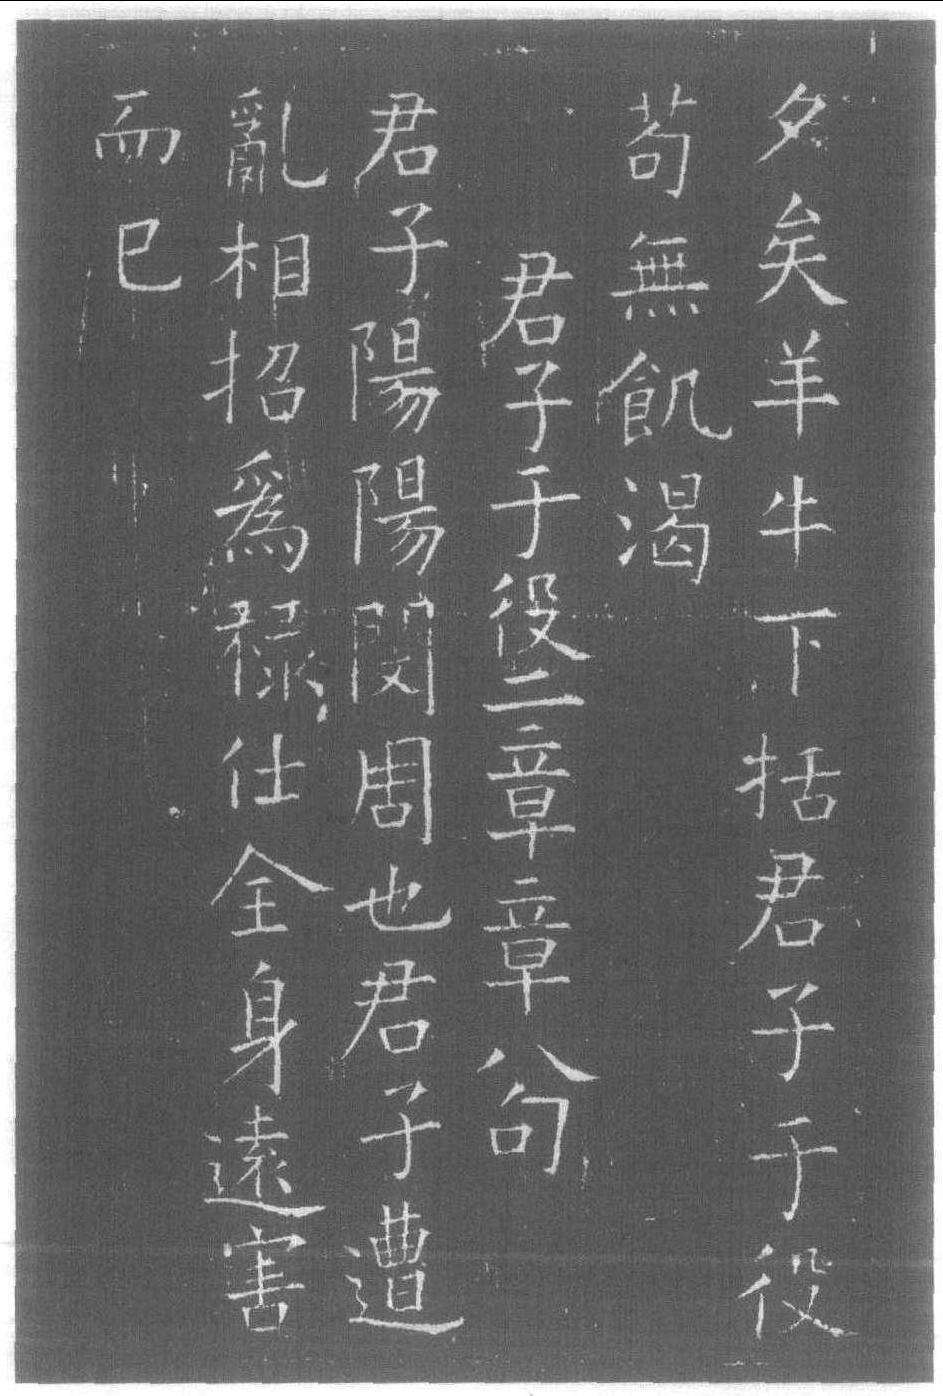 夕矣羊牛下括君子于役
苟無飢渴
君子于役二章章八句
君子陽陽閔周也君子遭
亂相招爲祿仕全身遠害
而已